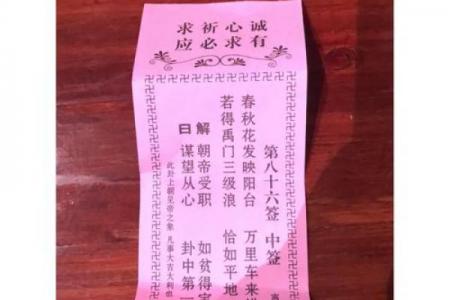 诚心祈求
有求必应
第八十六签 中签
春秋花发映阳台 万里车来
若得禹门三级浪 恰如平地
解曰
朝帝受职 如贫得
谋望从心 卦中第
此卦上朝见帝之象 凡事大吉大利也